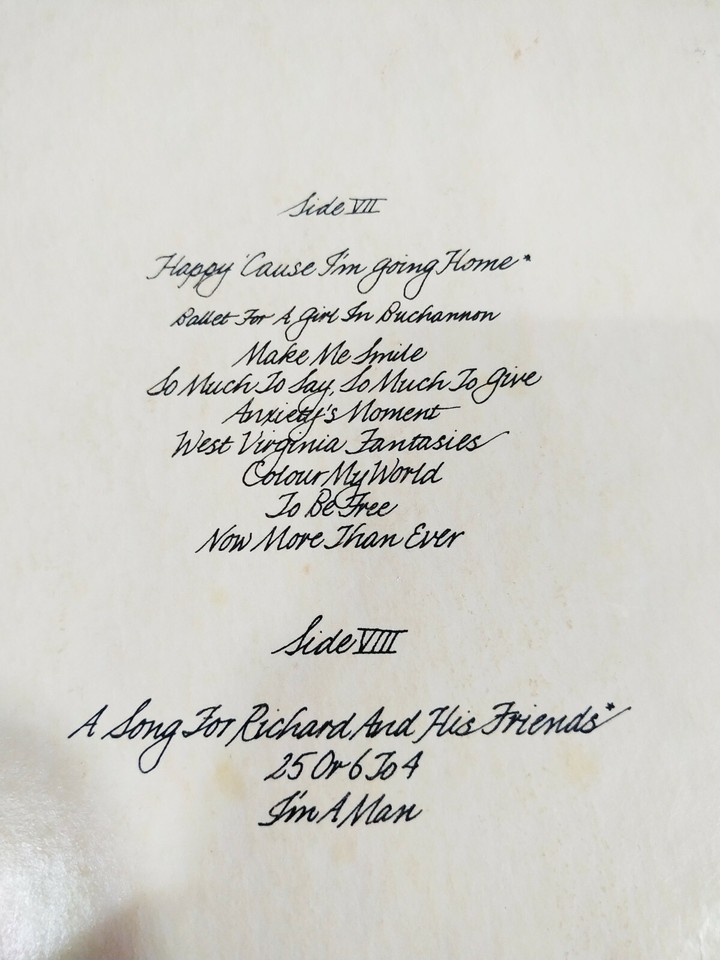 Side VII
Happy 'Cause I'm going Home*
Ballet For A Girl In Buchannon
Make Me Smile
So Much To Say, So Much To Give
Anxiety's Moment
West Virginia Fantasies
Colour My World
To Be Free
Now More Than Ever
Side VIII
A Song For Richard And His Friends*
25 Or 6 To 4
I'm A Man